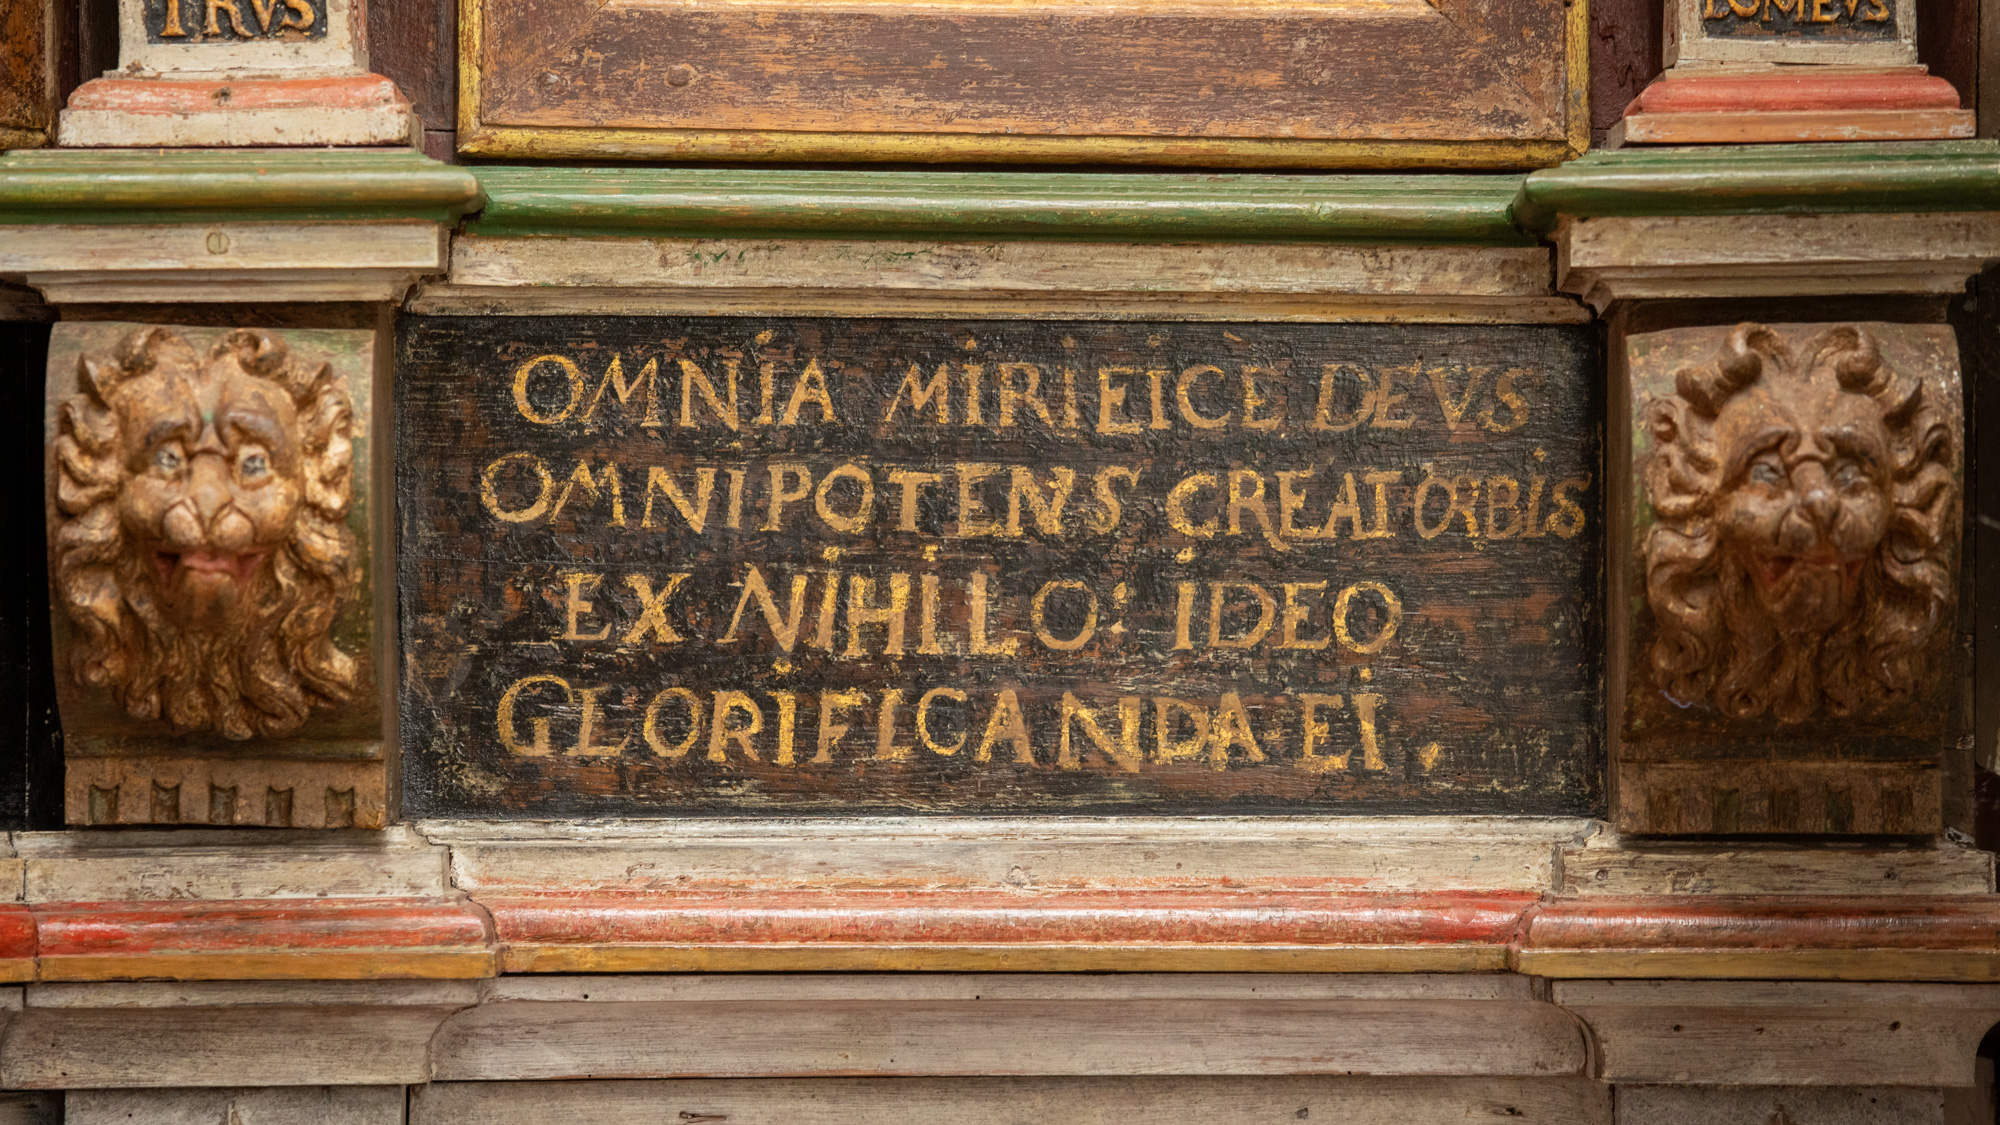 TRVS
LOMEVS
OMNIA MIRIFICÈ DEVS
OMNIPOTENS CREAT ORBIS
EX NIHILO: IDEO
GLORIFICANDA EI.